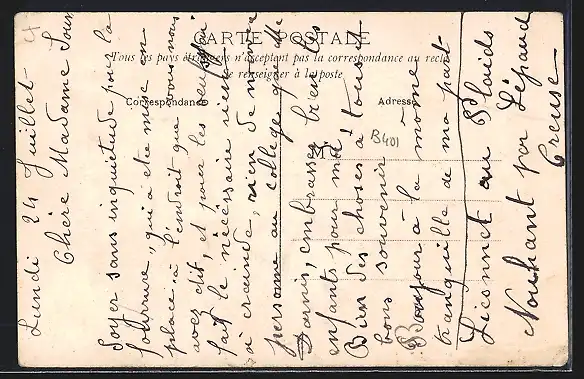 CARTE POSTALE
Tous les pays étrangers n'acceptent pas la correspondance au recto
Se renseigner à la poste
Correspondance
Adresse
M
B401
Lundi 24 Juillet
Chère Madame
Soyez sans inquiétude pour la
fourrure, qui a été mise en
place à l'endroit que vous nous
avez dit, et pour les
fait le nécessaire rien
à craindre, rien de même
personne au collège que Me
Darnis, embrassez bien les
enfants pour moi
Bien des choses à tous et
bons souvenir
Bonjour à la môme
tranquille de ma part
au Plaids
Nouhant par Lépaud
Creuse